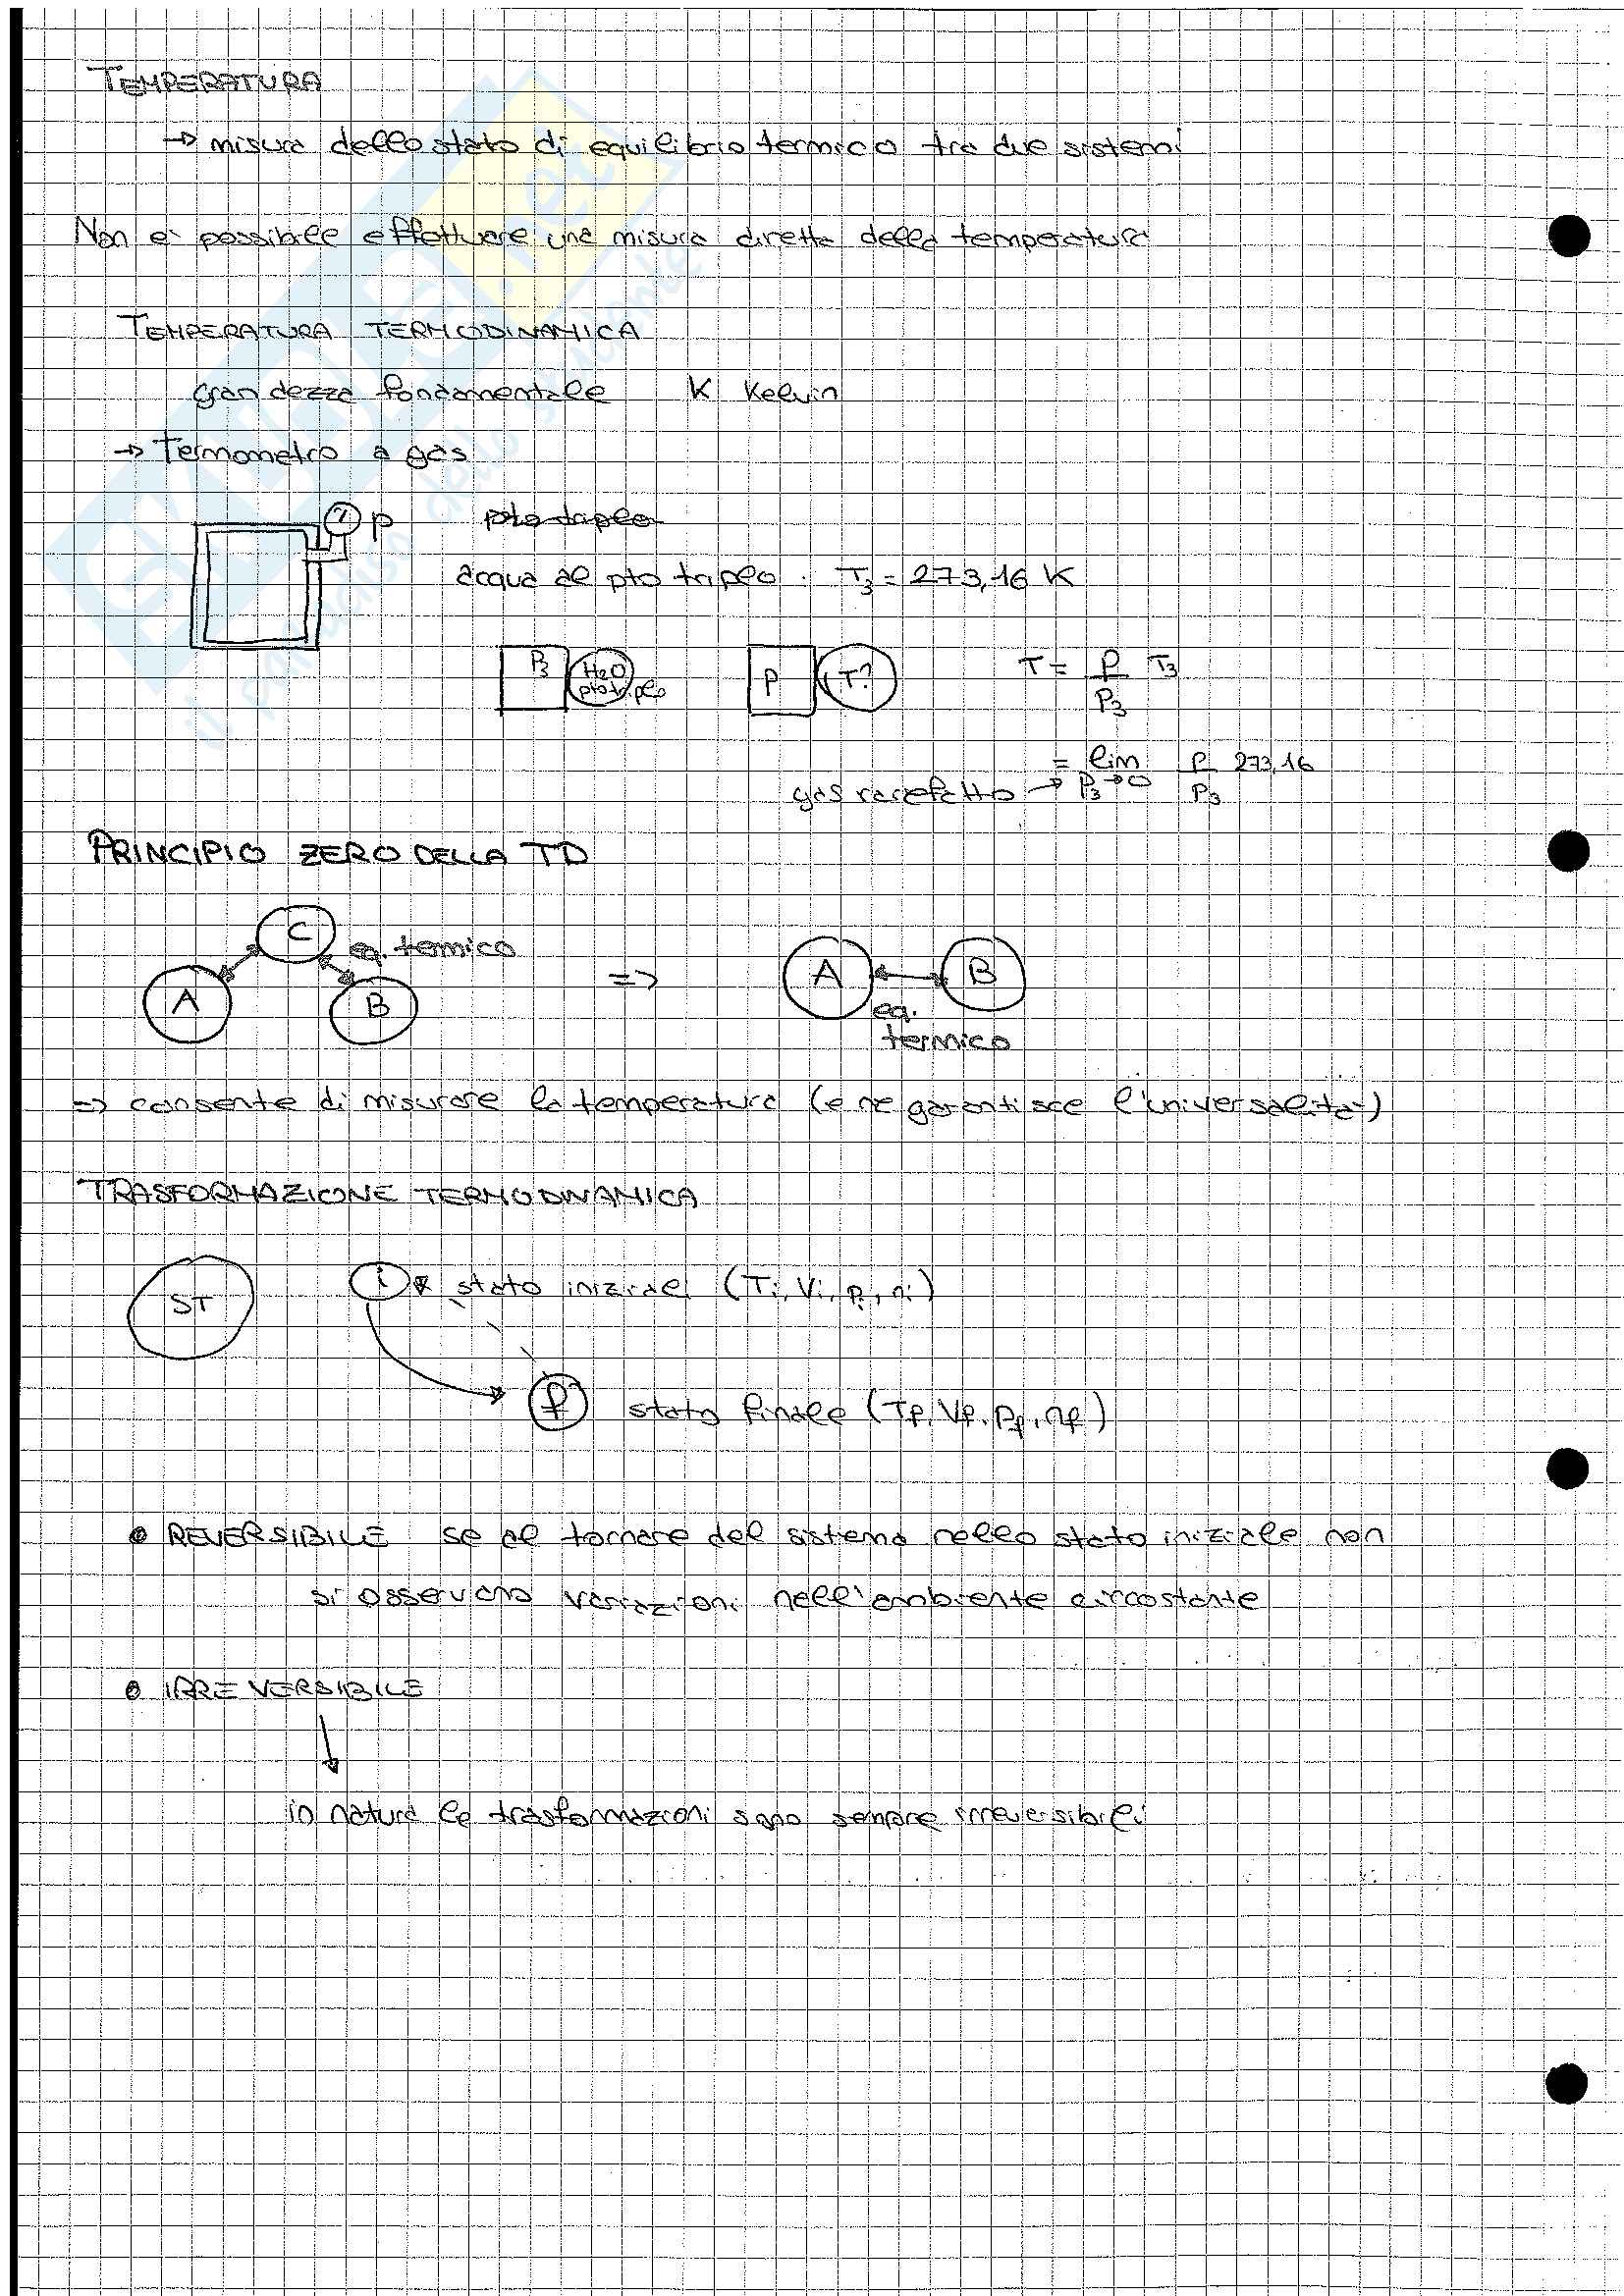 TEMPERATURA
→ misura dello stato di equilibrio termico tra due sistemi
Non e' possibile effettuare una misura diretta della temperatura
TEMPERATURA TERMODINAMICA
grandezza fondamentale K Kelvin
→ Termometro a gas
p pto triplo
acqua al pto triplo. T3 = 273,16 K
P3 H2O pto triplo P T? T = P/P3 T3
gas rarefatto → = lim P3→0 P/P3 273,16
PRINCIPIO ZERO DELLA TD
C
eq. termico
A B => A B
eq.
termico
=> consente di misurare la temperatura (e ne garantisce l'universalita')
TRASFORMAZIONE TERMODINAMICA
ST i stato iniziale (Ti, Vi, pi, ni)
f stato finale (Tf, Vf, pf, nf)
• REVERSIBILE se al tornare del sistema nello stato iniziale non
si osservano variazioni nell'ambiente circostante
• IRREVERSIBILE
in natura le trasformazioni sono sempre irreversibili
skuola.net
il paradiso dello studente